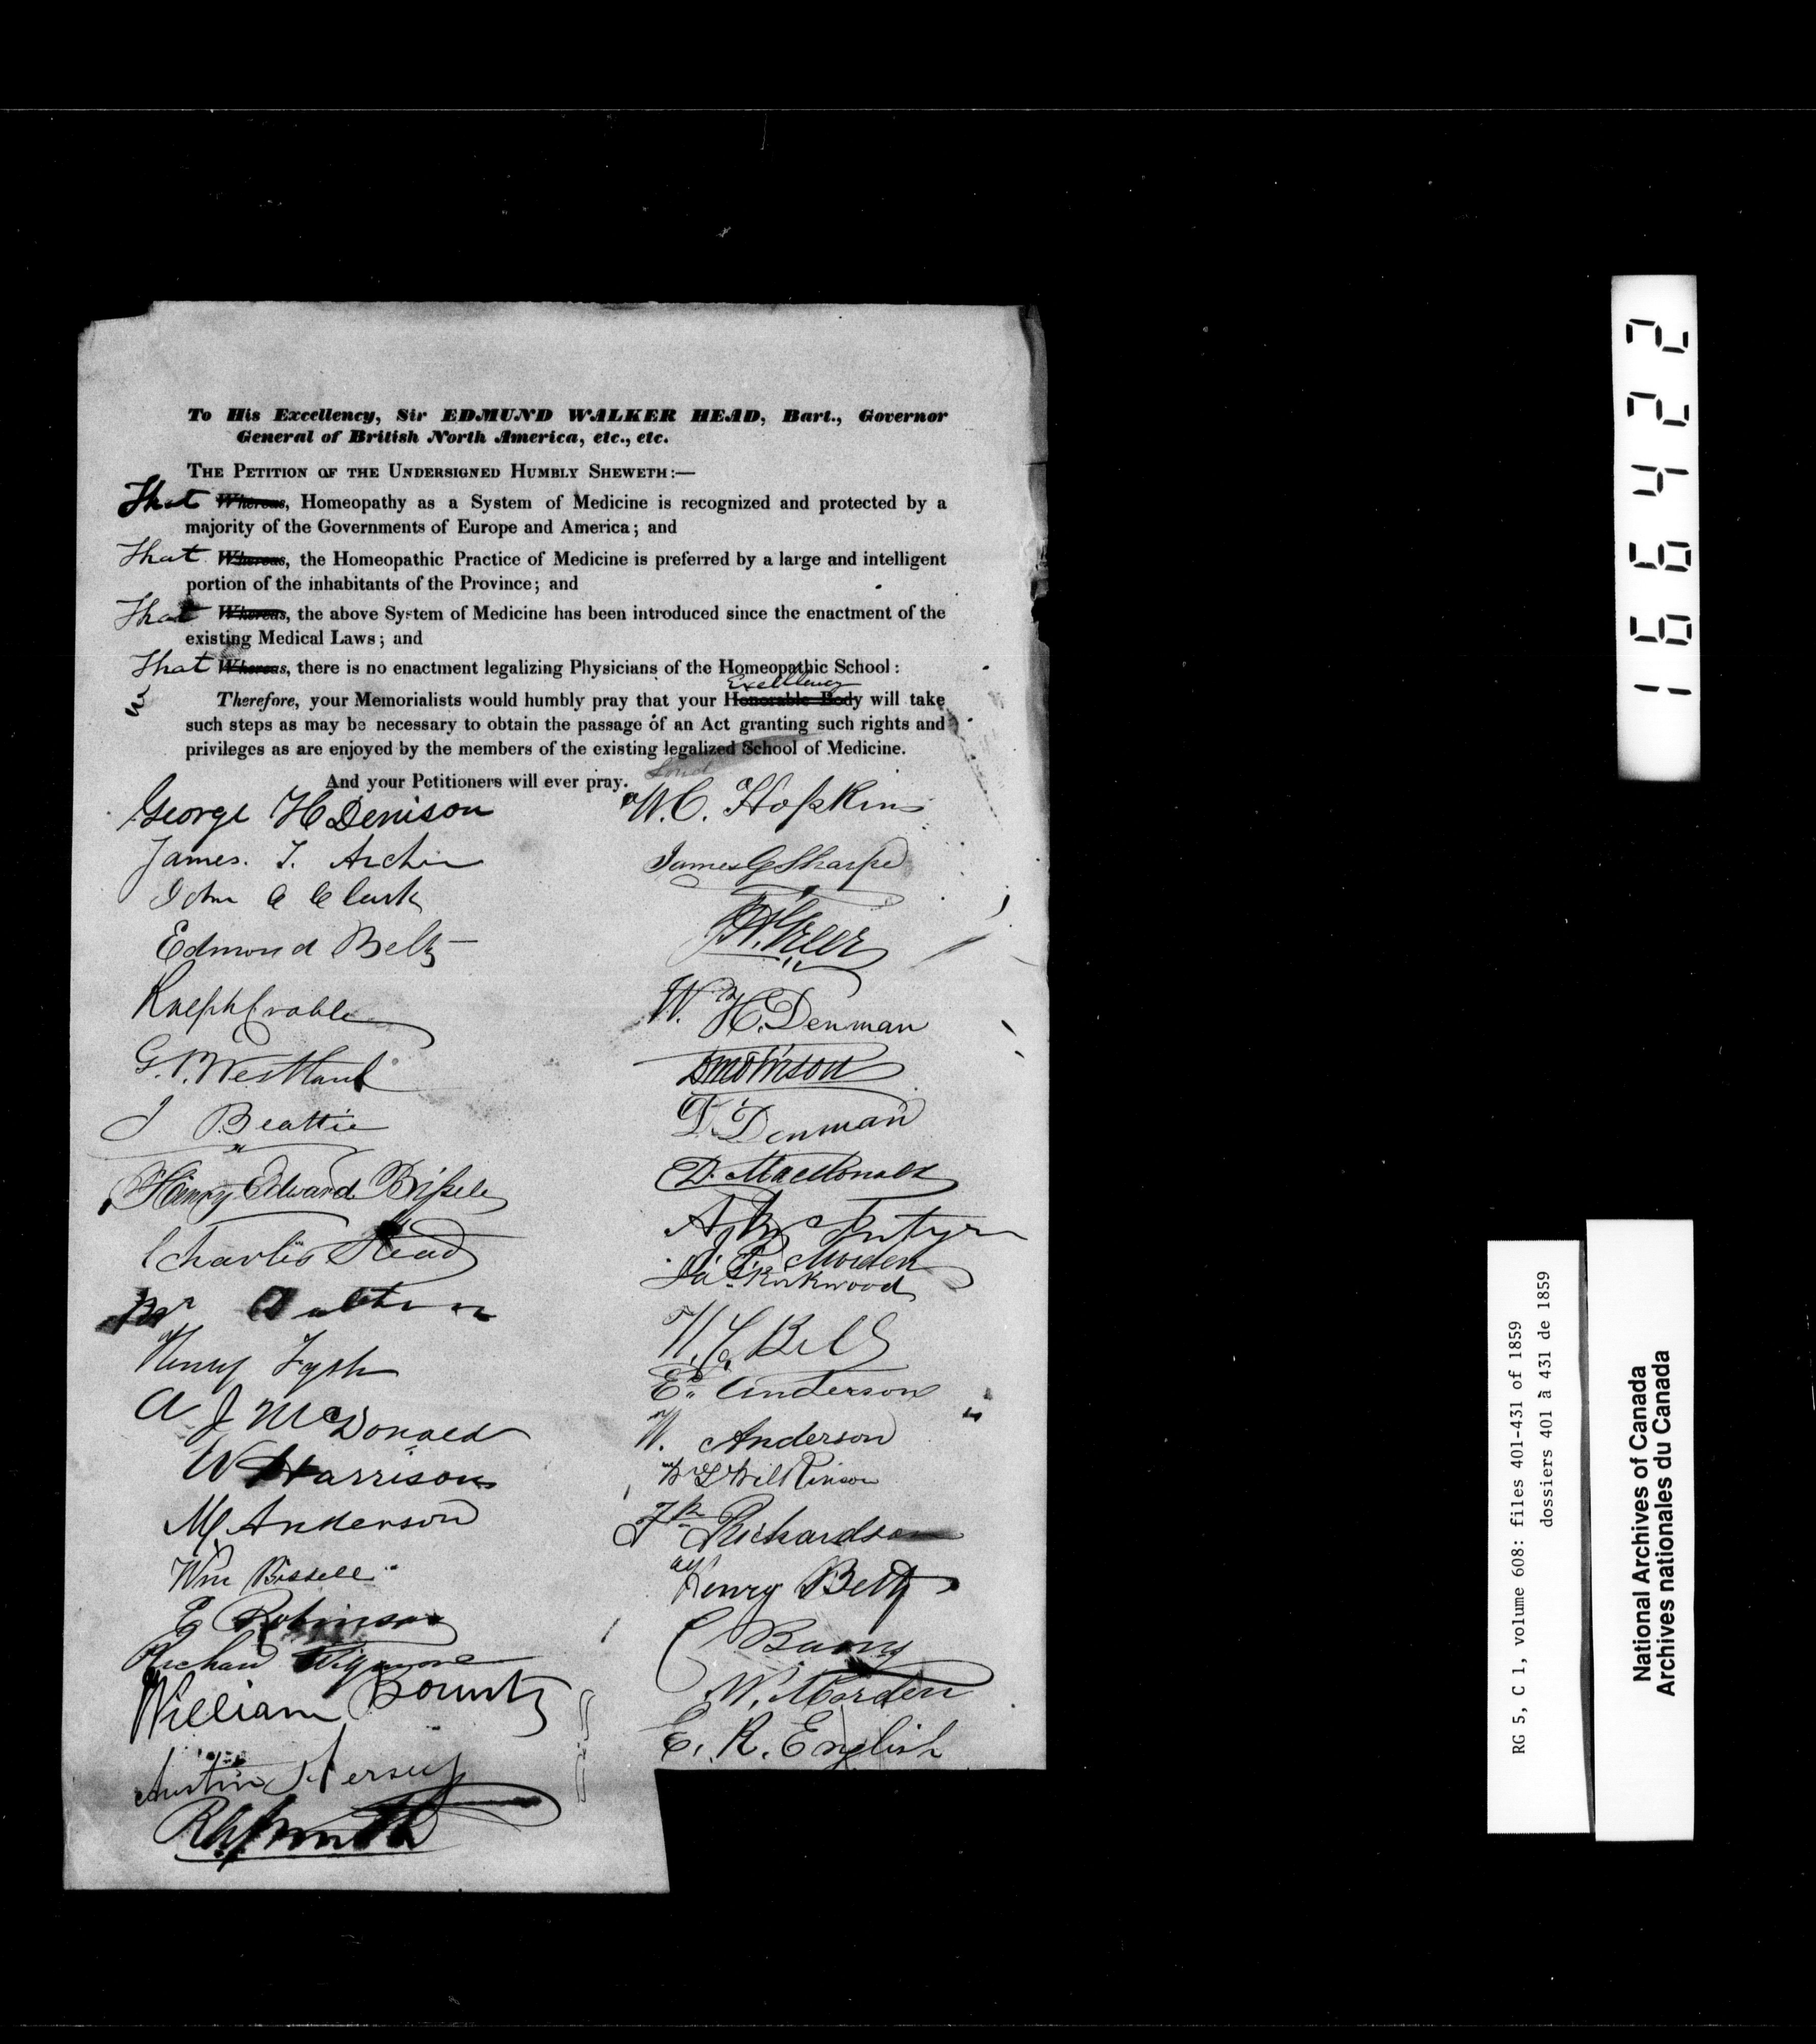 To His Excellency, Sir EDMUND WALKER HEAD, Bart., Governor
General of British North America, etc., etc.
THE PETITION OF THE UNDERSIGNED HUMBLY SHEWETH:—
That Whereas, Homeopathy as a System of Medicine is recognized and protected by a
majority of the Governments of Europe and America; and
That Whereas, the Homeopathic Practice of Medicine is preferred by a large and intelligent
portion of the inhabitants of the Province; and
That Whereas, the above System of Medicine has been introduced since the enactment of the
existing Medical Laws; and
That Whereas, there is no enactment legalizing Physicians of the Homeopathic School:
Excellency
Therefore, your Memorialists would humbly pray that your Honorable Body will take
such steps as may be necessary to obtain the passage of an Act granting such rights and
privileges as are enjoyed by the members of the existing legalized School of Medicine.
And your Petitioners will ever pray.
George H Denison
James. T.
John C Clark
Edmond Beltz
Ralph Crable
G. Westland
J Beattie
Henry Edward
Charles Head
Henry Fysh
A J McDonald
W Harrison
M Anderson
Wm Bissell
E Robinson
Richard Wigmore
William
Austin Hersey
Smith
W. C. Hopkins
James G Sharpe
Greer
Wm H. Denman
T. Denman
D. MacDonald
A McIntyre
J. P. Morden
Ja's Kirkwood
W. Bell
E. Anderson
W. Anderson
W L Wilkinson
Jn Richardson
Henry Beltz
C
W. Morden
E. R. English
166422
RG 5, C 1, volume 608: files 401-431 of 1859
dossiers 401 à 431 de 1859
National Archives of Canada
Archives nationales du Canada